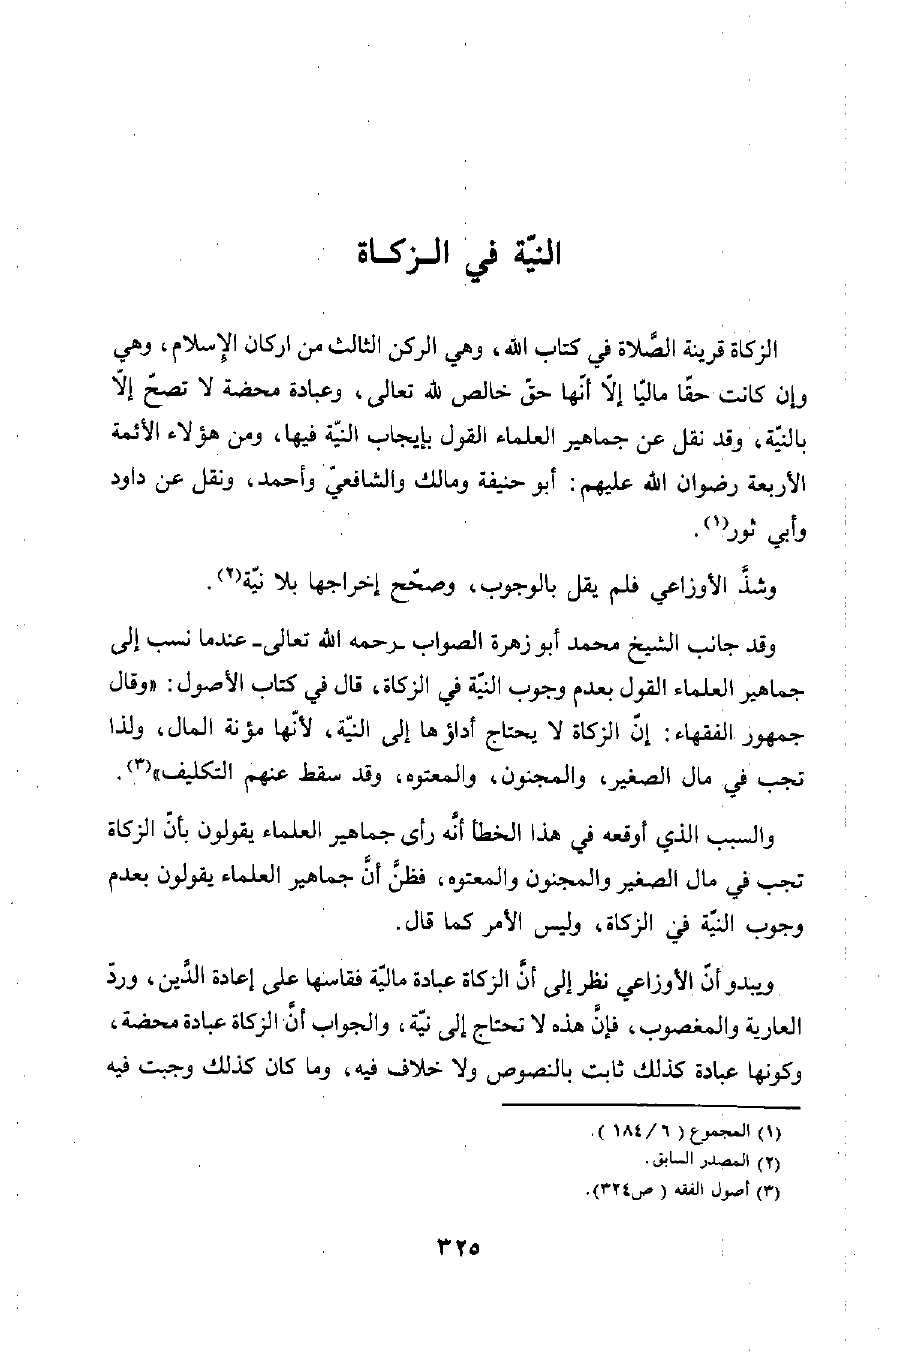 النيّة في الـزكـاة
الزكاة قرينة الصَّلاة في كتاب الله، وهي الركن الثالث من اركان الإِسلام، وهي
وإن كانت حقّا ماليّا إلّا أنّها حقّ خالص لله تعالى، وعبادة محضة لا تصحّ إلّا
بالنيّة، وقد نقل عن جماهير العلماء القول بإيجاب النيّة فيها، ومن هؤلاء الأئمة
الأربعة رضوان الله عليهم: أبو حنيفة ومالك والشافعيّ وأحمد، ونقل عن داود
وأبي ثور(١).
وشذَّ الأوزاعي فلم يقل بالوجوب، وصحّح إخراجها بلا نيّة(٢).
وقد جانب الشيخ محمد أبو زهرة الصواب ـرحمه الله تعالى ـ عندما نسب إلى
جماهير العلماء القول بعدم وجوب النيّة في الزكاة، قال في كتاب الأصول: «وقال
جمهور الفقهاء: إنّ الزكاة لا يحتاج أداؤها إلى النيّة، لأنّها مؤنة المال، ولذا
تجب في مال الصغير، والمجنون، والمعتوه، وقد سقط عنهم التكليف»(٣).
والسبب الذي أوقعه في هذا الخطأ أنَّه رأى جماهير العلماء يقولون بأنّ الزكاة
تجب في مال الصغير والمجنون والمعتوه، فظنَّ أنَّ جماهير العلماء يقولون بعدم
وجوب النيّة في الزكاة، وليس الأمر كما قال.
ويبدو أنّ الأوزاعي نظر إلى أنَّ الزكاة عبادة ماليّة فقاسها على إعادة الدَّين، وردّ
العارية والمغصوب، فإنَّ هذه لا تحتاج إلى نيّة، والجواب أنَّ الزكاة عبادة محضة،
وكونها عبادة كذلك ثابت بالنصوص ولا خلاف فيه، وما كان كذلك وجبت فيه
(١) المجموع ( ٦/ ١٨٤ ).
(٢) المصدر السابق.
(٣) أصول الفقه ( ص٣٢٤).
٣٢٥